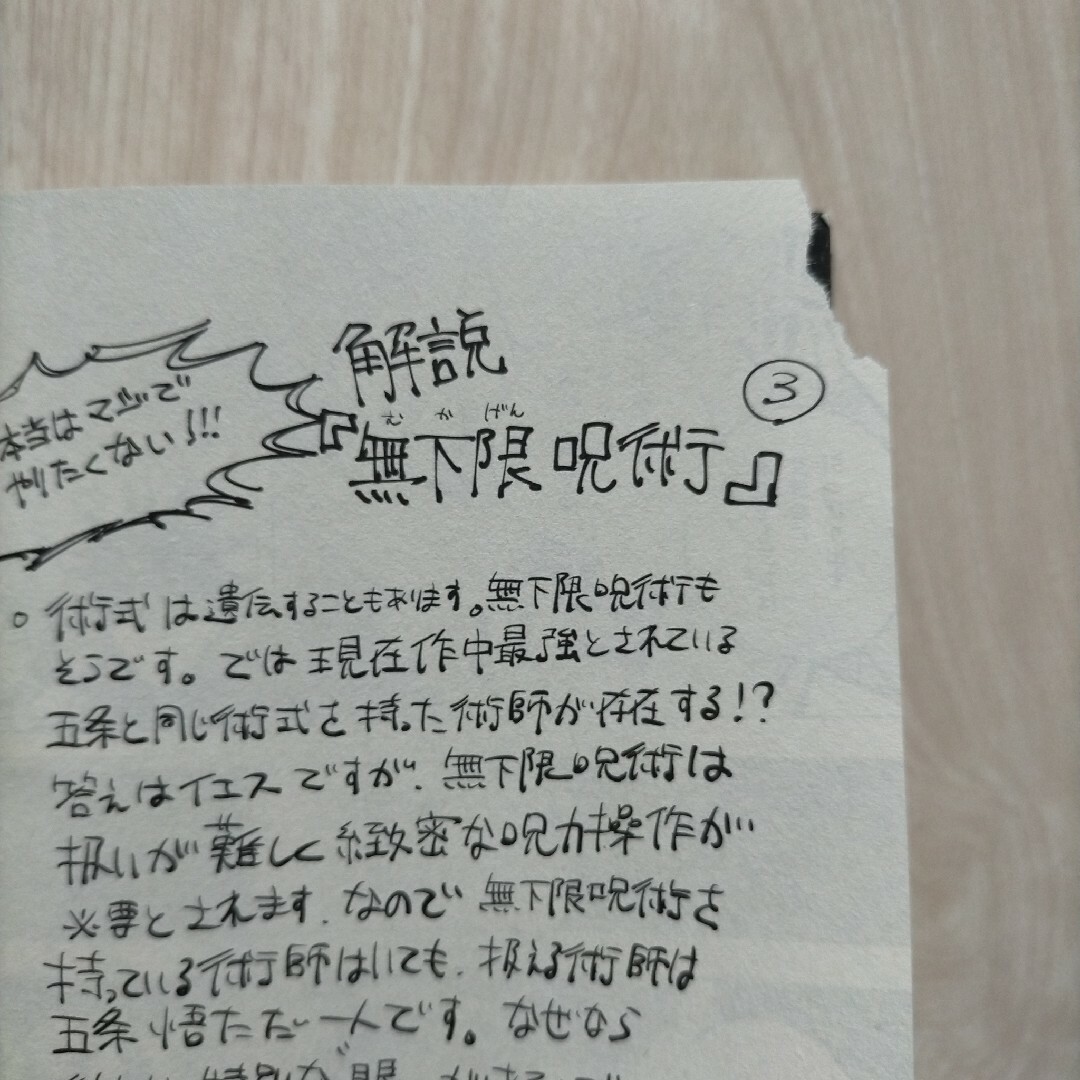 本当はマジで
やりたくない!!!
解説
③
むかげん
『無下限呪術』
○術式は遺伝することもあります。無下限呪術も
そうです。では現在作中最強とされている
五条と同じ術式を持った術師が存在する!?
答えはイエスですが、無下限呪術は
扱いが難しく緻密な呪力操作が
必要とされます。なので無下限呪術を
持っている術師はいても、扱える術師は
五条悟ただ一人です。なぜなら
特別な眼